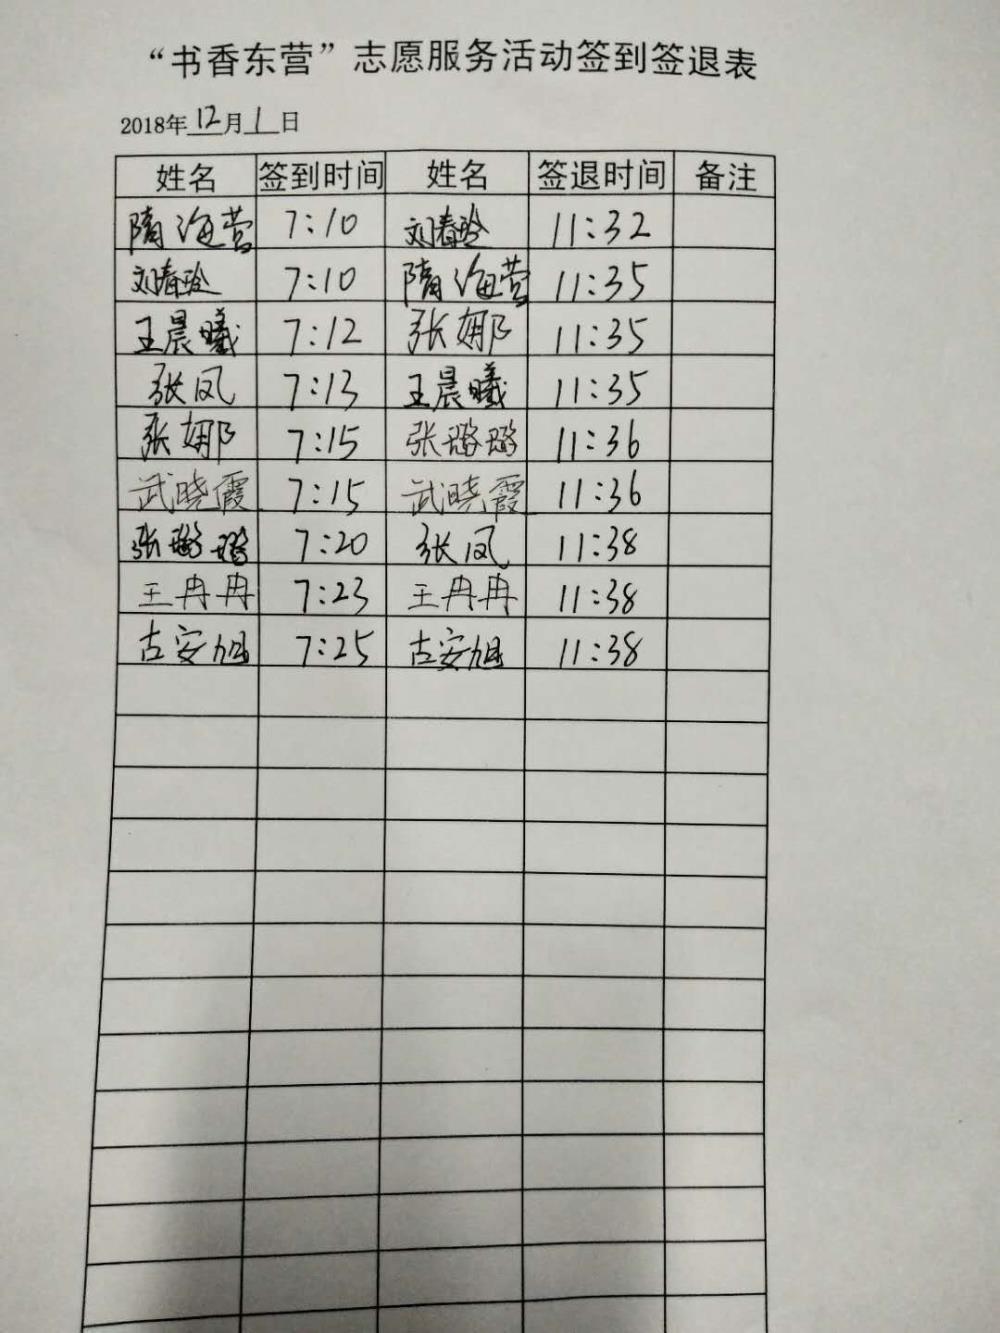 “书香东营”志愿服务活动签到签退表
2018年12月1日
姓名 签到时间 姓名 签退时间 备注
隋海营 7:10 刘春玲 11:32
刘春玲 7:10 隋海营 11:35
王晨曦 7:12 张娜 11:35
张凤 7:13 王晨曦 11:35
张娜 7:15 张璐璐 11:36
武晓霞 7:15 武晓霞 11:36
张璐璐 7:20 张凤 11:38
王冉冉 7:23 王冉冉 11:38
古安旭 7:25 古安旭 11:38